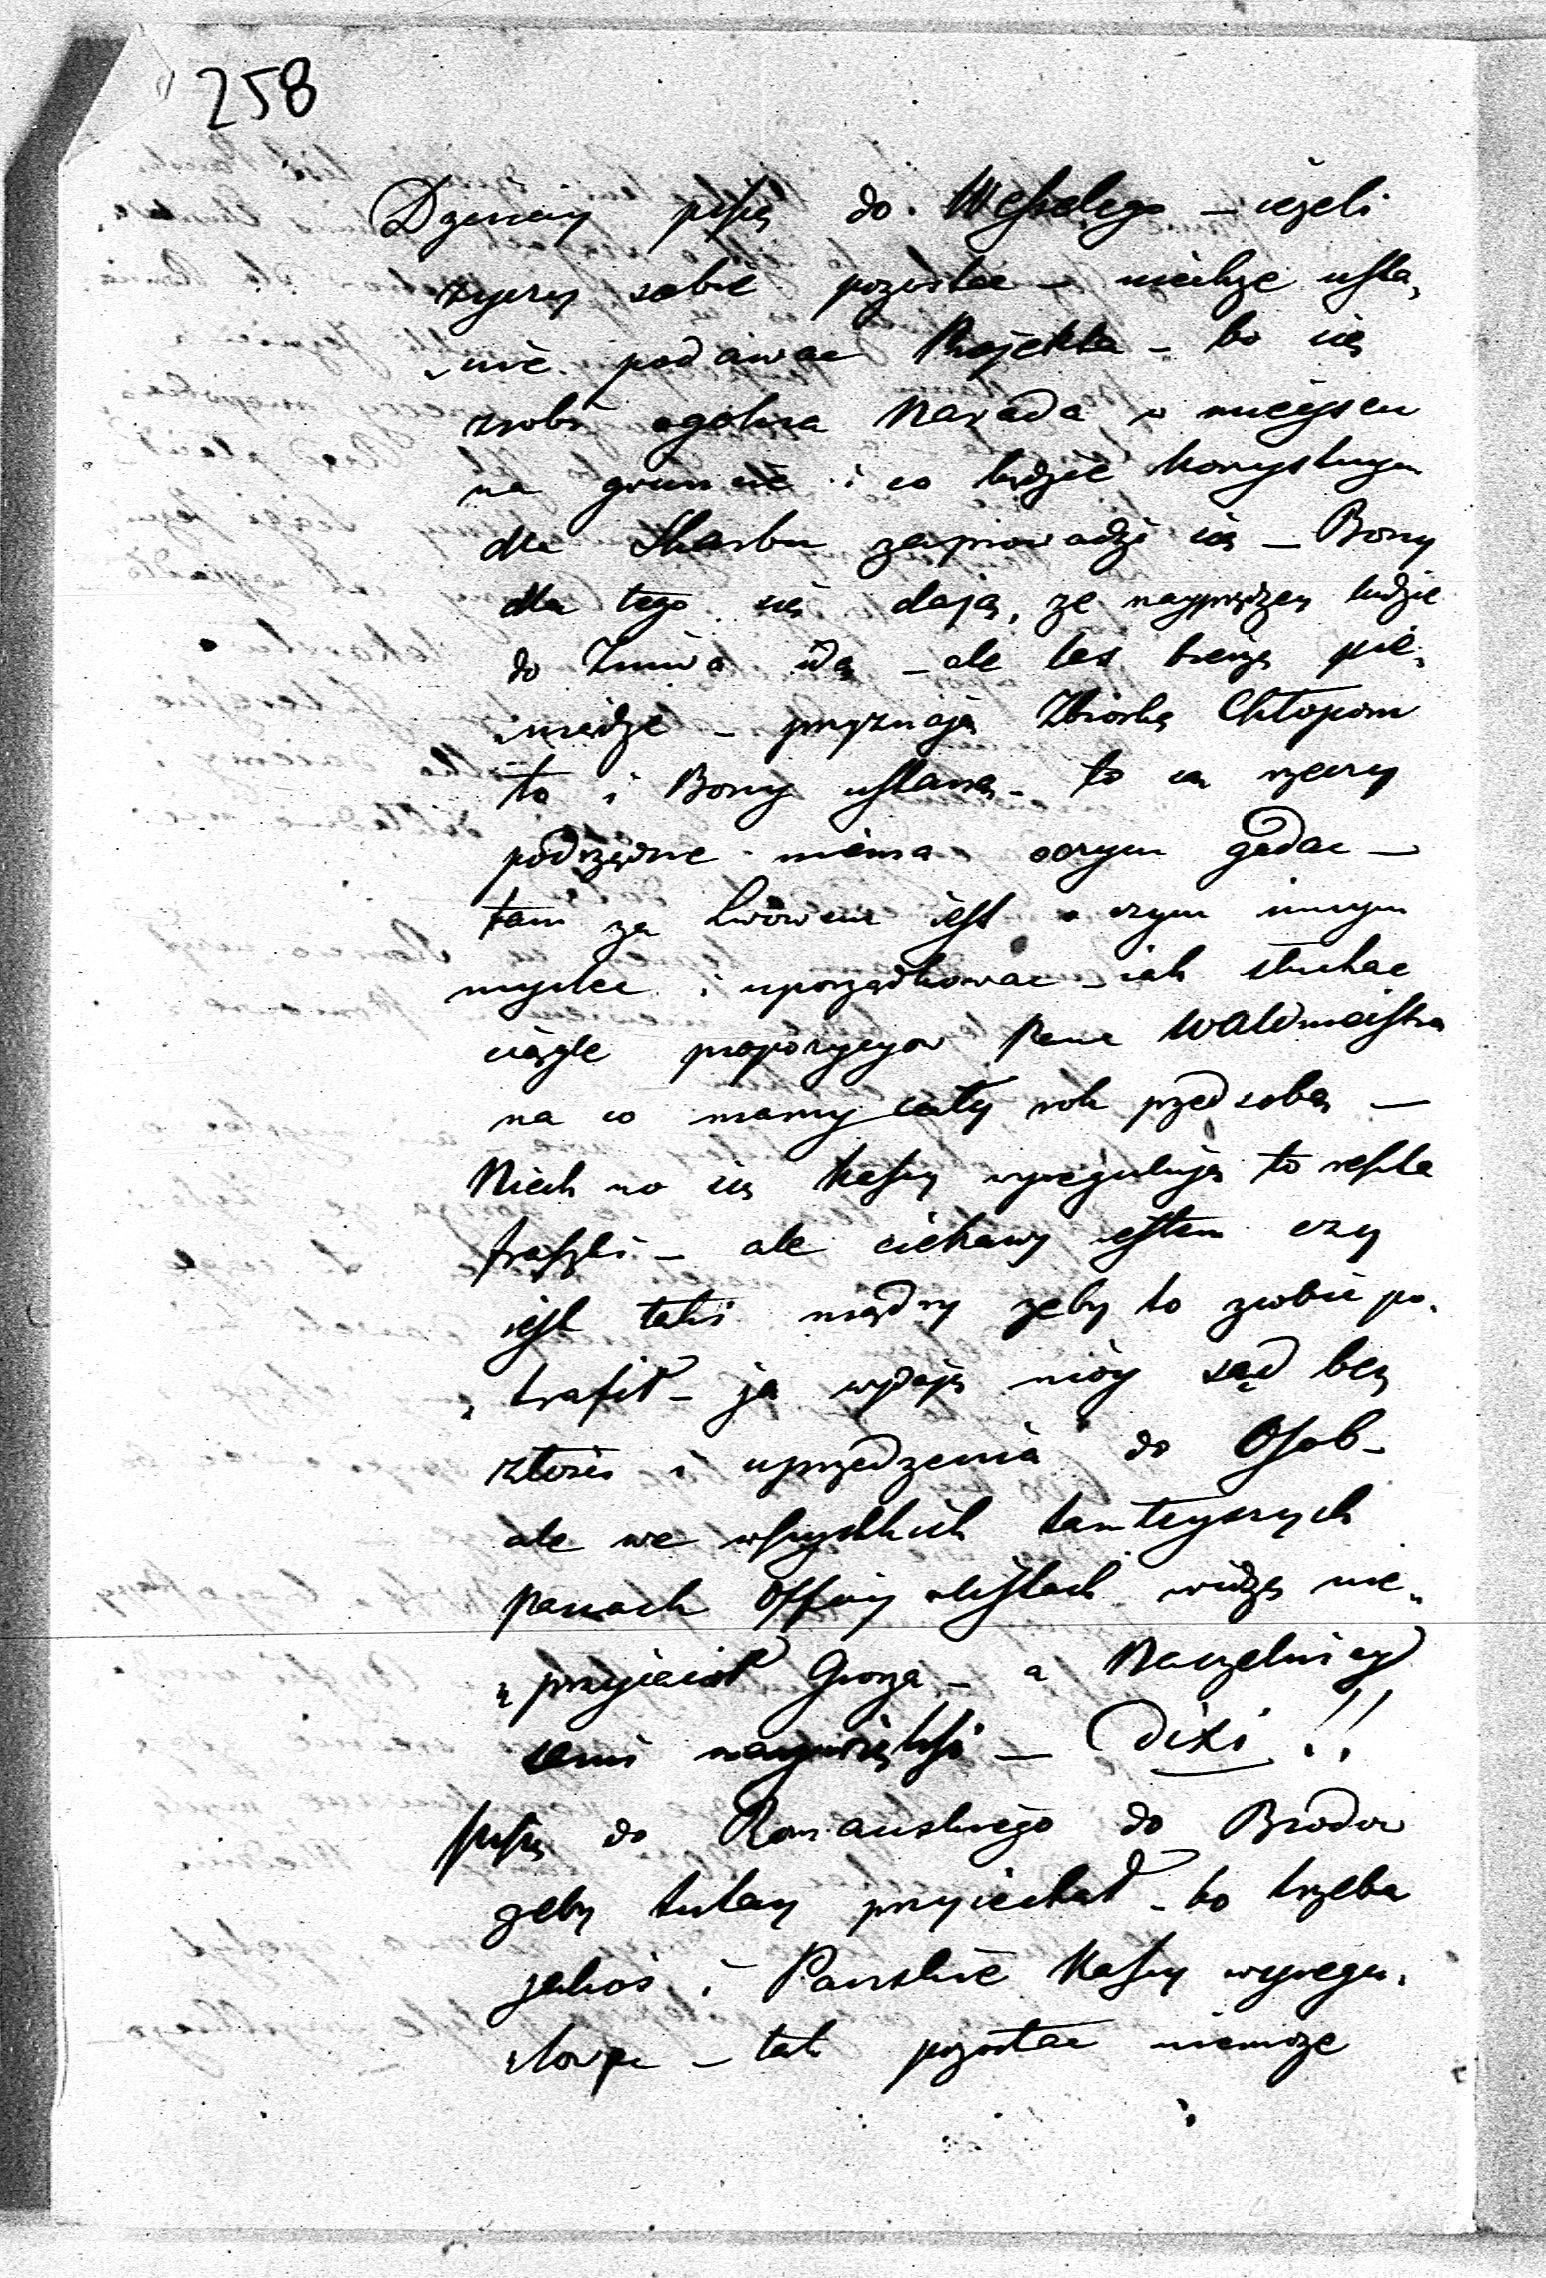 258
Dzisiay piszę do Wessalego – ieżeli
życzy sobie pozostac – niechze usta„
„nie podawac Projekta – bo się
zrobi ogolna Narada w mieyscu
na gruncie i co będzie korzystnym
dla Skarbu zaprowadzi się – Bony
dla tego się dają, ze nayprędzey ludzie
do Zniwa idą – ale las bierze pie„
„niędze – przyznają Zbiorkę Chłopom
to i Bony ustaną – to są rzeczy
podrzędne niema o czym gadac –
tam za Lwowem jest o czym innym
myslec i uporządkowac – iak słuchac
ciągle propozycyow Pana Waldmeistra
na co mamy cały rok przed sobą –
Niech no się Kassy wyregulują to reszta
fraszki – ale ciekawy jestem czy
jest taki mądry zeby to zrobić po„
„trafił – ja wydaję móy sąd bez
złości i uprzedzenia do Osob –
ale we wszystkich tamteyszych
Panach Officyalistach widzę nie„
„przyjaciół Grosza – a Naczelnicy
sami naywiększi – Dixi !!
piszę do Romanskiego do Brodow
zeby tutay przyjechał – bo trzeba
jakoś i Panskie Kassy wyregu„
„lować – tak pozostac niemoze